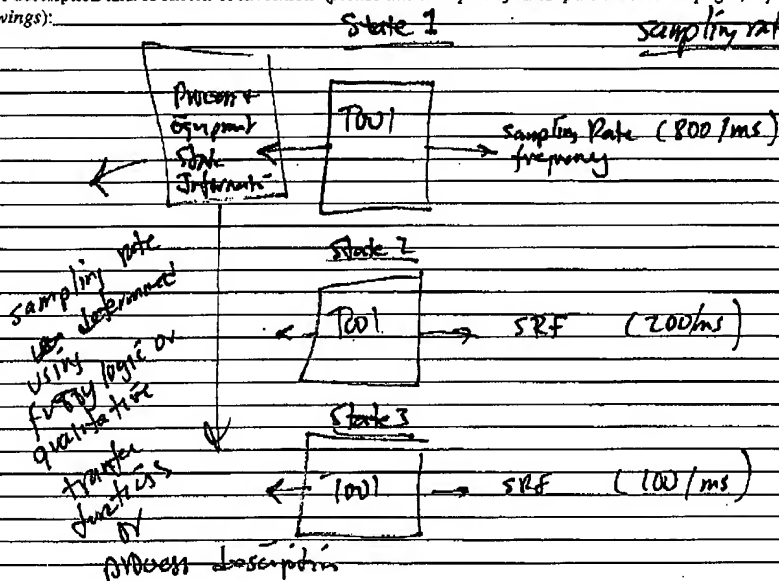 wings):
State 1
sampling rat
Process +
Equipment
State
Informati
Tool
Sampling Rate (800/ms)
frequency
State 2
Tool
SRF (200/ms)
State 3
Tool
SRF (100/ms)
sampling rate
determined
using
fuzzy logic or
qualitative
transfer
functions
or
process description